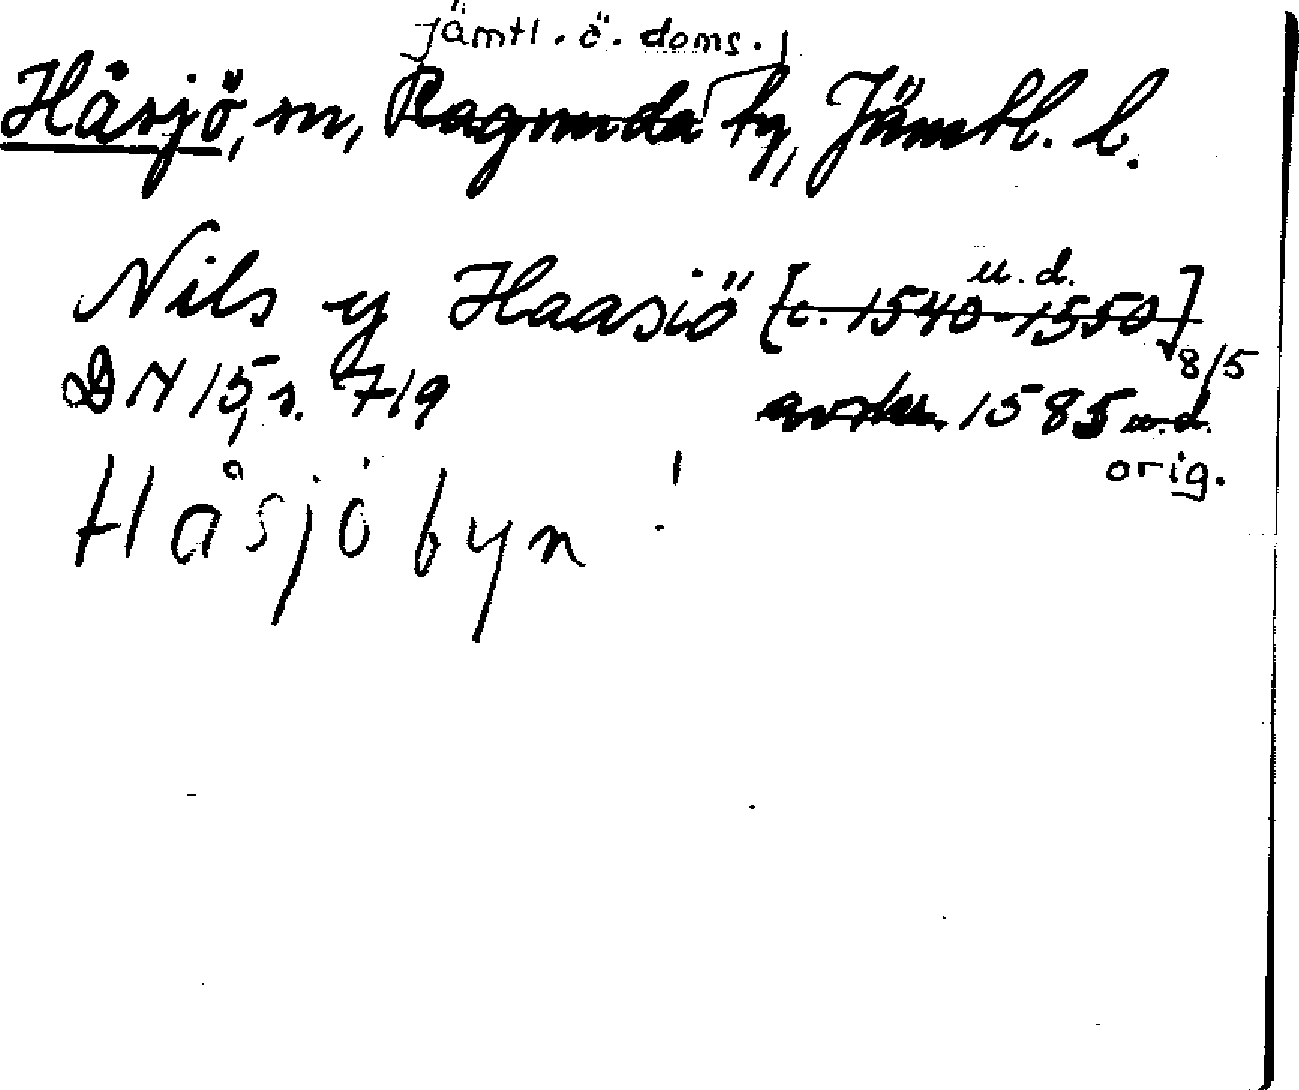 jämtl. ö. doms.
Håsjö, sn, Ragunda tg, Jämtl. l.
Nils y Haasiö [c. 1540-1550] u. d.
8/5
DN 15, s. 719 avskr. 1585 u. d.
orig.
Håsjö byn !